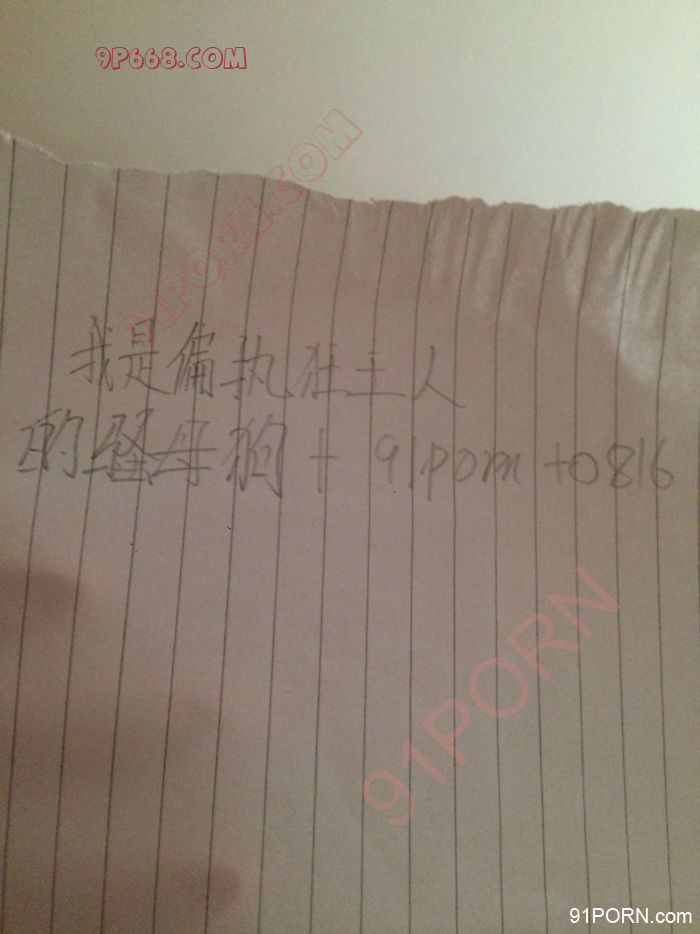 9P668.COM
我是偏执狂主人
的骚母狗+91porn+0816
91PORN
91PORN.com